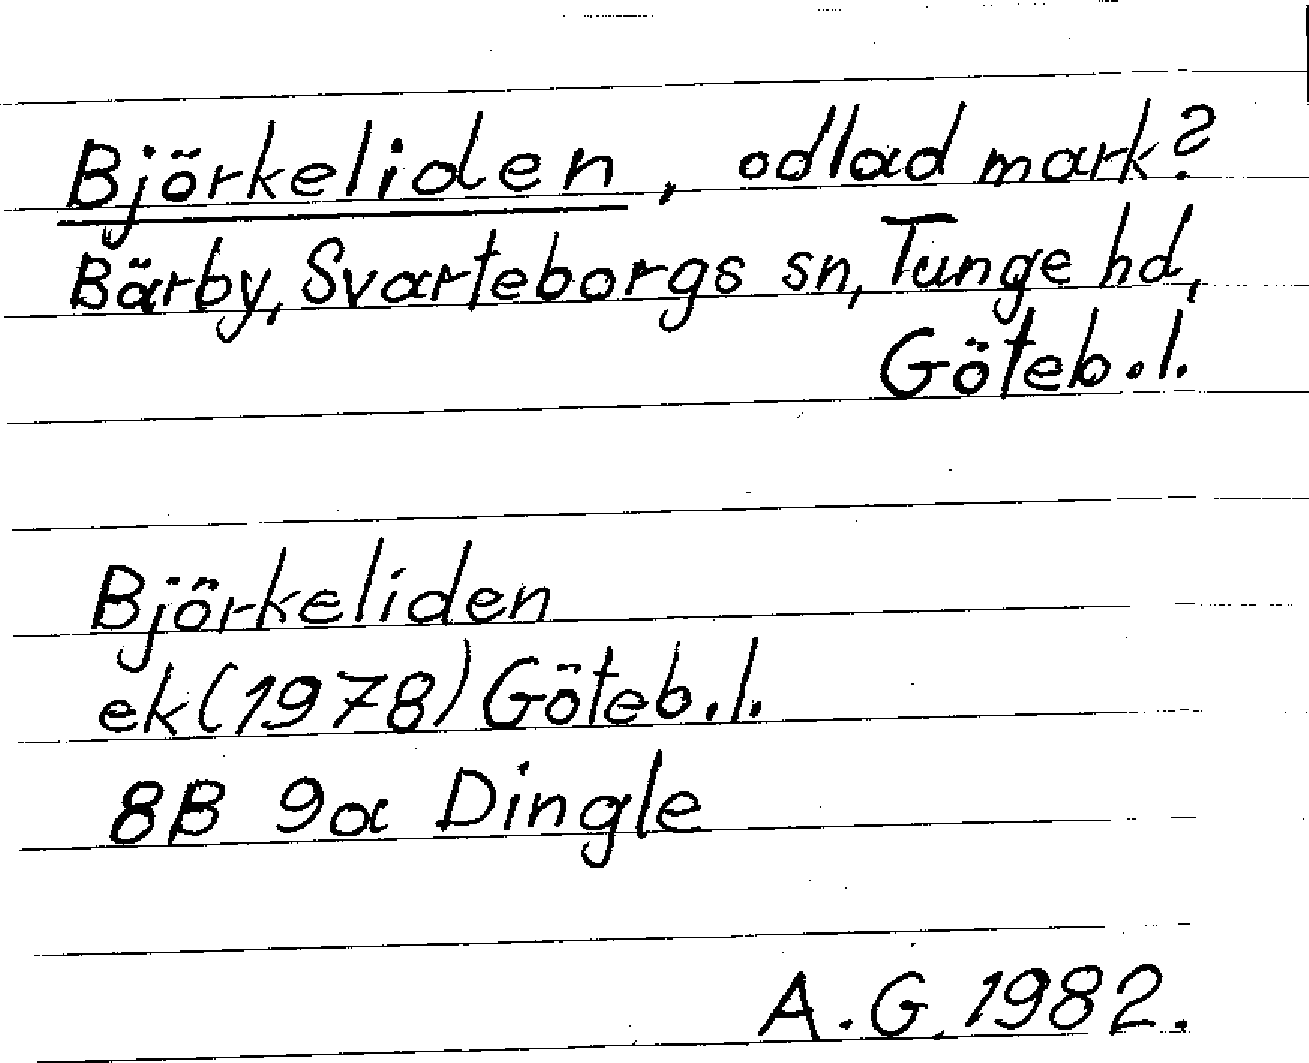 Björkeliden, odlad mark?
Bärby, Svarteborgs sn, Tunge hd,
Göteb.l.
Björkeliden
ek (1978) Göteb.l.
8B 9a Dingle
A.G. 1982.